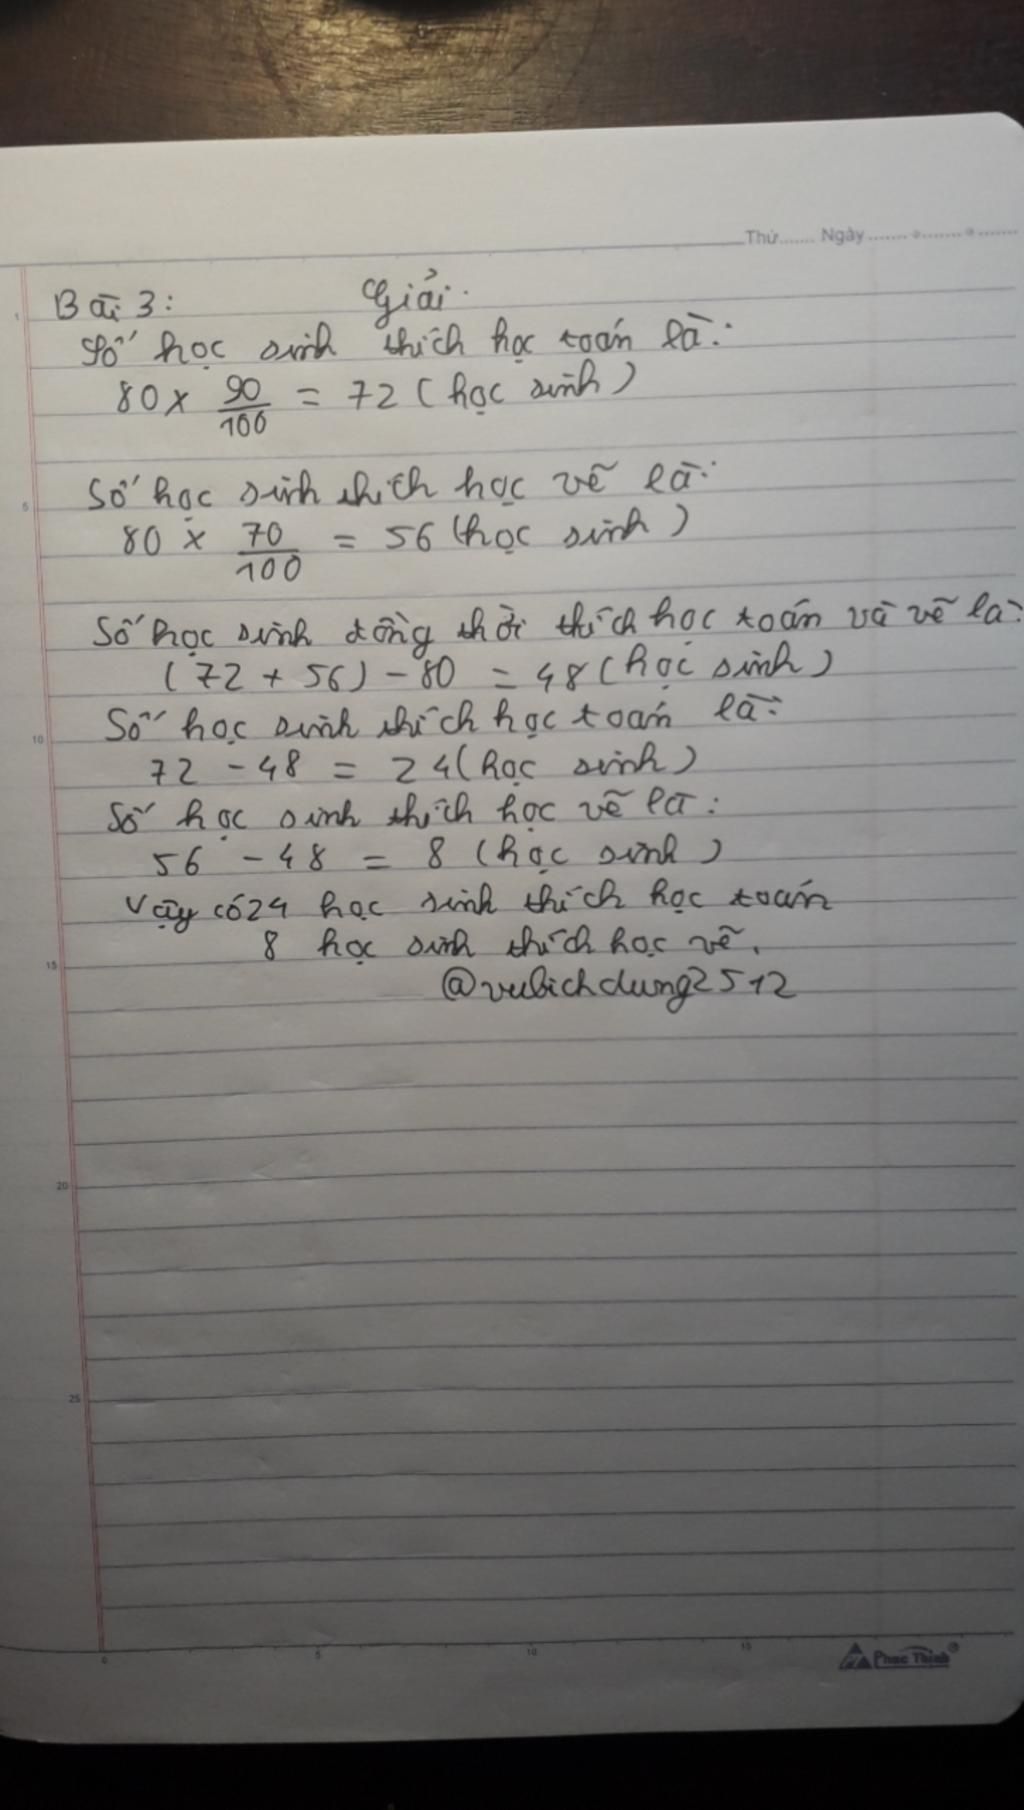 Thứ....... Ngày.......
Bài 3: Giải.
Số học sinh thích học toán là:
80 x 90/100 = 72 (học sinh)
Số học sinh thích học vẽ là:
80 x 70/100 = 56 (học sinh)
Số học sinh đồng thời thích học toán và vẽ là:
(72 + 56) - 80 = 48 (học sinh)
Số học sinh thích học toán là:
72 - 48 = 24 (học sinh)
Số học sinh thích học vẽ là:
56 - 48 = 8 (học sinh)
Vậy có 24 học sinh thích học toán
8 học sinh thích học vẽ.
@vubichdung2512
1
5
10
15
20
25
0 5 10 15
Phúc Thịnh